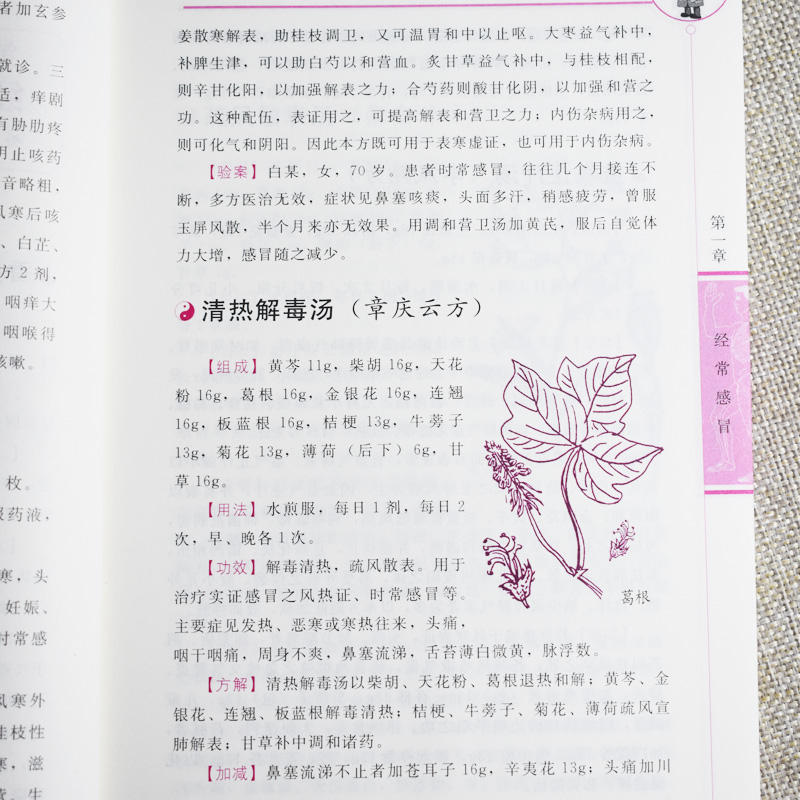 者加玄参
就诊。三
适，痒剧
有胁肋疼
阴止咳药
音略粗、
风寒后咳
、白芷、
方2剂，
咽痒大
咽喉得
咳嗽。
枚。
服药液，
寒，头
妊娠、
时常感
风寒外
桂枝性
寒，滋
姜散寒解表，助桂枝调卫，又可温胃和中以止呕。大枣益气补中，
补脾生津，可以助白芍以和营血。炙甘草益气补中，与桂枝相配，
则辛甘化阳，以加强解表之力；合芍药则酸甘化阴，以加强和营之
功。这种配伍，表证用之，可提高解表和营卫之力；内伤杂病用之，
则可化气和阴阳。因此本方既可用于表寒虚证，也可用于内伤杂病。
【验案】白某，女，70岁。患者时常感冒，往往几个月接连不
断，多方医治无效，症状见鼻塞咳痰，头面多汗，稍感疲劳，曾服
玉屏风散，半个月来亦无效果。用调和营卫汤加黄芪，服后自觉体
力大增，感冒随之减少。
清热解毒汤（章庆云方）
【组成】黄芩11g，柴胡16g，天花
粉16g，葛根16g，金银花16g，连翘
16g，板蓝根16g，桔梗13g，牛蒡子
13g，菊花13g，薄荷（后下）6g，甘
草16g。
【用法】水煎服，每日1剂，每日2
次，早、晚各1次。
【功效】解毒清热，疏风散表。用于
治疗实证感冒之风热证、时常感冒等。
主要症见发热、恶寒或寒热往来，头痛，
咽干咽痛，周身不爽，鼻塞流涕，舌苔薄白微黄，脉浮数。
【方解】清热解毒汤以柴胡、天花粉、葛根退热和解；黄芩、金
银花、连翘、板蓝根解毒清热；桔梗、牛蒡子、菊花、薄荷疏风宣
肺解表；甘草补中调和诸药。
【加减】鼻塞流涕不止者加苍耳子16g，辛夷花13g；头痛加川
葛根
第一章
经常感冒